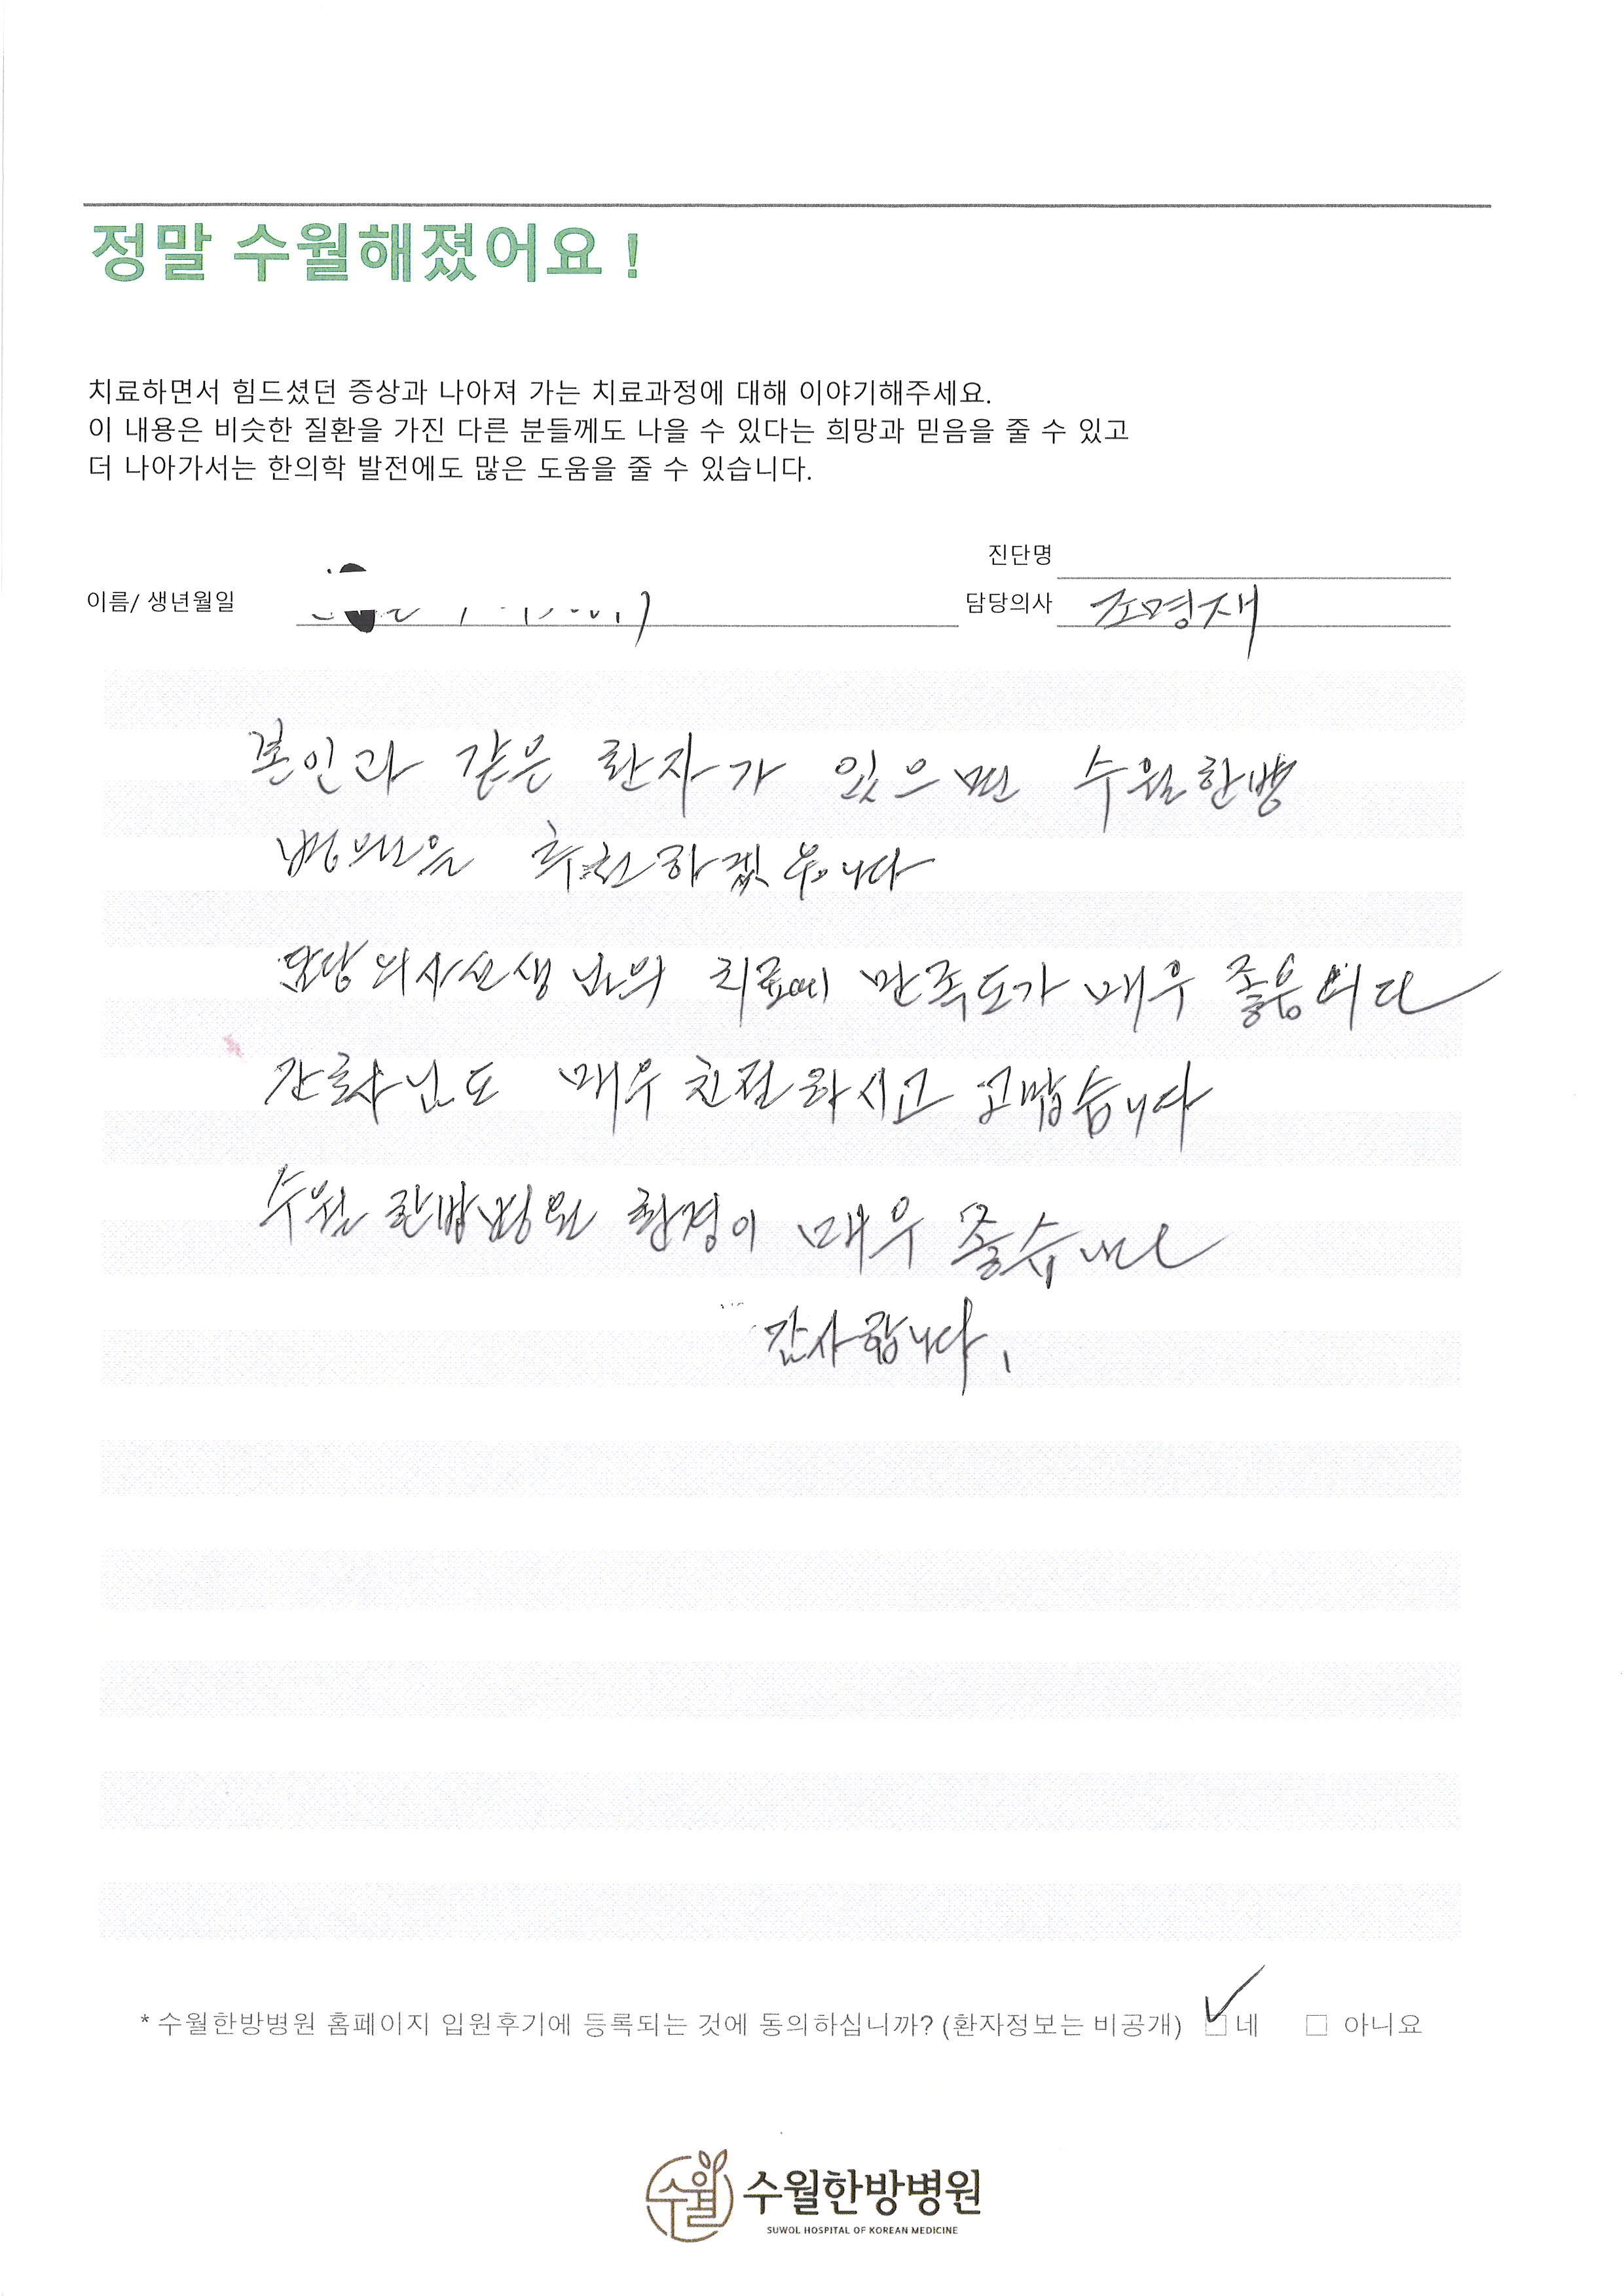 정말 수월해졌어요!
치료하면서 힘드셨던 증상과 나아져 가는 치료과정에 대해 이야기해주세요.
이 내용은 비슷한 질환을 가진 다른 분들께도 나을 수 있다는 희망과 믿음을 줄 수 있고
더 나아가서는 한의학 발전에도 많은 도움을 줄 수 있습니다.
진단명
이름/ 생년월일
담당의사 조명재
본인과 같은 환자가 있으면 수월한병
병원을 추천하겠습니다
담당의사선생님의 치료에 만족도가 매우 좋습니다
간호사님도 매우 친절하시고 고맙습니다
수월한방병원 환경이 매우 좋습니다
감사합니다.
* 수월한방병원 홈페이지 입원후기에 등록되는 것에 동의하십니까? (환자정보는 비공개) ☑ 네 □ 아니요
수월 수월한방병원
SUWOL HOSPITAL OF KOREAN MEDICINE